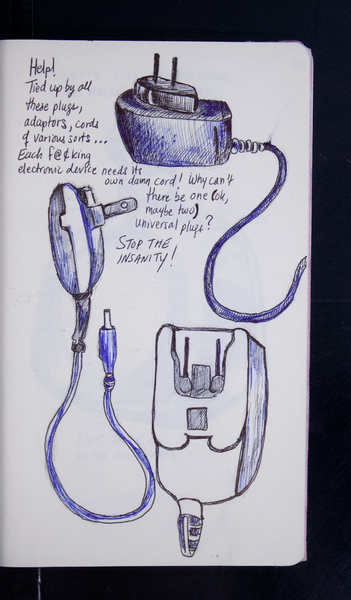 Help!
Tied up by all
these plugs,
adaptors, cords
of various sorts...
Each f@¢king
electronic device needs its
own damn cord! Why can't
there be one (ok,
maybe two)
universal plug?
STOP THE
INSANITY!